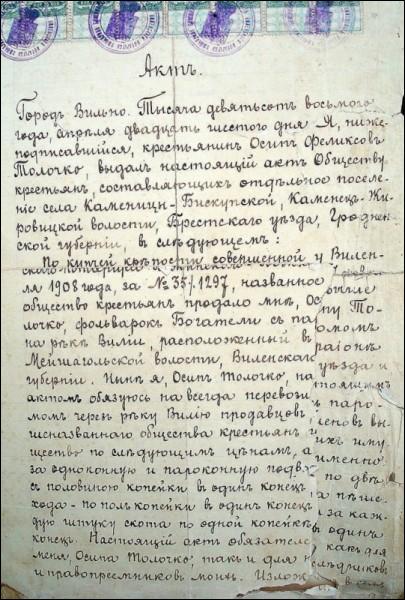 Актъ.
Городъ Вильно. Тысяча девятьсотъ восьмого
года, апрѣля двадцать шестого дня Я, ниже-
подписавшійся, крестьянинъ Осипъ Феликсовъ
Толочко, выдалъ настоящій актъ Обществу
крестьянъ, составляющихъ отдѣльное поселе-
ніе села Каменицы-Бискупской, Каменец-Жи-
ровицкой волости, Брестскаго уѣзда, Гроднен-
ской губерніи, въ слѣдующемъ:
По купчей крѣпости совершенной у Вилен-
ля 1908 года, за № 35/1297, названное
общество крестьянъ продало мнѣ, Ос пу То-
лочко, фольварокъ Богатели съ па ромомъ
на рѣкѣ Виліи, расположенный въ раіонѣ
Мейшагольской волости, Виленскаго уѣзда и
губерніи. Нынѣ я, Осипъ Толочко, на стоящимъ
актомъ обязуюсь на всегда перевози паро-
момъ черезъ рѣку Вилію продавцовъ
шеназваннаго общества крестьянъ и ихъ иму
щество по слѣдующимъ цѣнамъ, а именно
за одноконную и пароконную подв по двѣ
съ половиною копейки въ одинъ конецъ, а пѣше
хода - по полъ копейки въ одинъ конецъ и за каж-
дую штуку скота по одной копейкѣ въ одинъ
конецъ. Настоящій актъ обязателе какъ для
меня, Осипа Толочко, такъ и для слѣдниковъ
и правопреемниковъ моихъ. Излож